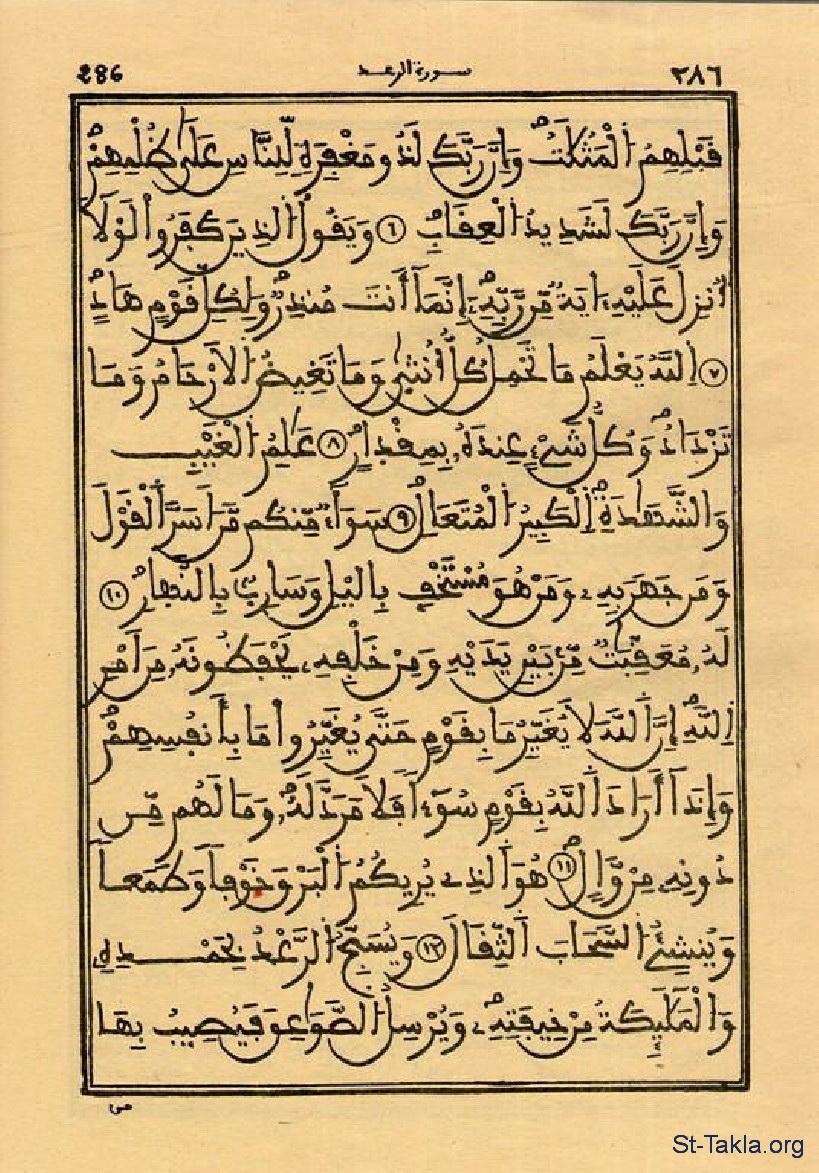 286 سورة الرعد ٢٨٦
قَبْلِهِمُ الْمَثُلَٰتُ وَإِنَّ رَبَّكَ لَذُو مَغْفِرَةٍ لِّلنَّاسِ عَلَىٰ ظُلْمِهِمْ
وَإِنَّ رَبَّكَ لَشَدِيدُ الْعِقَابِ ٦ وَيَقُولُ الذِينَ كَفَرُوا لَوْلَا
أُنزِلَ عَلَيْهِ ءَايَةٌ مِّن رَّبِّهِ إِنَّمَا أَنتَ مُنذِرٌ وَلِكُلِّ قَوْمٍ هَادٍ
٧ اِللَّهُ يَعْلَمُ مَا تَحْمِلُ كُلُّ أُنثَىٰ وَمَا تَغِيضُ الْأَرْحَامُ وَمَا
تَزْدَادُ وَكُلُّ شَيْءٍ عِندَهُ بِمِقْدَارٍ ٨ عَٰلِمُ الْغَيْبِ
وَالشَّهَٰدَةِ اِلْكَبِيرُ الْمُتَعَالِ ٩ سَوَآءٌ مِّنكُم مَّنْ أَسَرَّ اَلْقَوْلَ
وَمَن جَهَرَ بِهِ وَمَنْ هُوَ مُسْتَخْفٍ بِاليْلِ وَسَارِبٌ بِالنَّهَارِ ١٠
لَهُ مُعَقِّبَٰتٌ مِّنۢ بَيْنِ يَدَيْهِ وَمِنْ خَلْفِهِ يَحْفَظُونَهُ مِنْ أَمْرِ
اِللَّهِ إِنَّ اَللَّهَ لَا يُغَيِّرُ مَا بِقَوْمٍ حَتَّىٰ يُغَيِّرُوا مَا بِأَنفُسِهِمْ
وَإِذَا أَرَادَ اَللَّهُ بِقَوْمٍ سُوٓءًا فَلَا مَرَدَّ لَهُ وَمَا لَهُم مِّن
دُونِهِ مِنْ وَّالٍ ١١ هُوَ اَلذِي يُرِيكُمُ الْبَرْقَ خَوْفًا وَطَمَعًا
وَيُنشِئُ السَّحَابَ اَلثِّقَالَ ١٢ وَيُسَبِّحُ الرَّعْدُ بِحَمْدِهِ
وَالْمَلَٰٓئِكَةُ مِنْ خِيفَتِهِ وَيُرْسِلُ الصَّوَٰعِقَ فَيُصِيبُ بِهَا
St-Takla.org